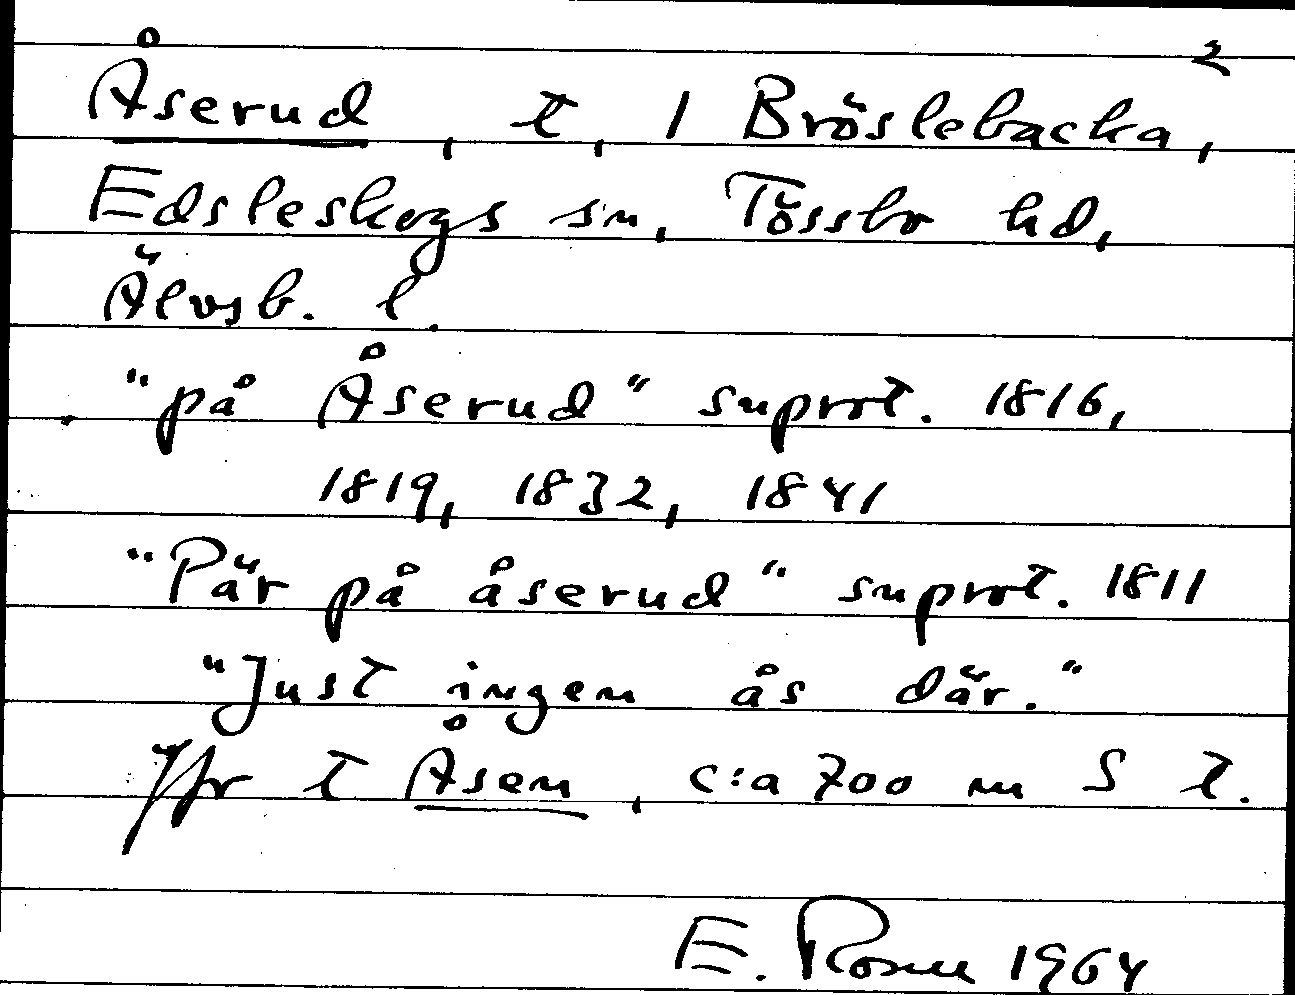 2
Åserud, t, 1 Bröslebacka,
Edsleskogs sn, Tössbo hd,
Älvsb. l.
"på Åserud" suprot. 1816,
1819, 1832, 1841
"Pär på åserud" suprot. 1811
"Just ingen ås där."
Jfr t Åsen, c:a 700 m S t.
E. Rosell 1964